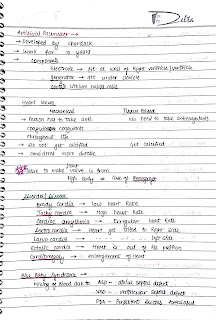 Delta
Artificial Pacemaker →
→ Developed by chardack
→ Work for 10 years
→ Components
Electrode → fit at wall of Right ventricle/ventricle
generator → fit under clavicle
Lithium halide cells
Heart Valves
Mechanical Tissue Valves
→ Person has to take anti No need to take anticoagulants
coagulants
throughout life
→ Do not get calcified Get calcified
→ Considered more durable
valve is from
Disorder/Disease
Brady cardia → low heart Rate
Tachy cardia → High heart Rate
Cardiac arrythmia → Irregular heart Rate
Dextro cardia → Heart get tilted to Right side
Levo cardia → left side
Ectopic cardia → Heart is out of its position
Cardiomegaly → enlargement of Heart
Blue Baby Syndrome →
Mixing of blood due to ASD - atrial septal defect
VSD - ventricular septal defect
PDA - Ductus Arteriosus